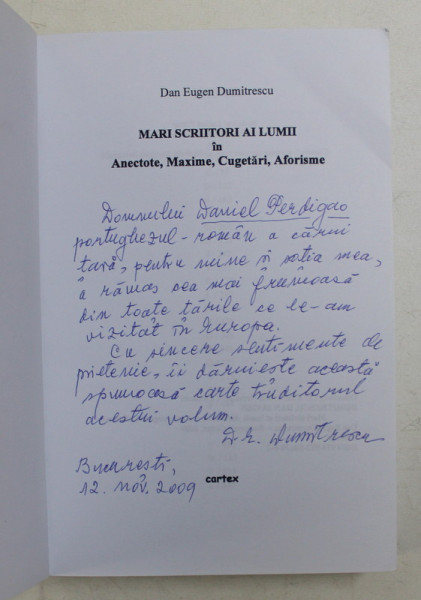 Dan Eugen Dumitrescu
MARI SCRIITORI AI LUMII
în
Anectote, Maxime, Cugetări, Aforisme
Domnului Daniel Perdigao
portughezul-român a cărui
țară, pentru mine și soția mea,
a rămas cea mai frumoasă
din toate țările ce le-am
vizitat în Europa.
Cu sincere sentimente de
prietenie, îi dăruiește această
spumoasă carte truditorul
acestui volum.
D.E. Dumitrescu
București,
12. nov. 2009
cartex